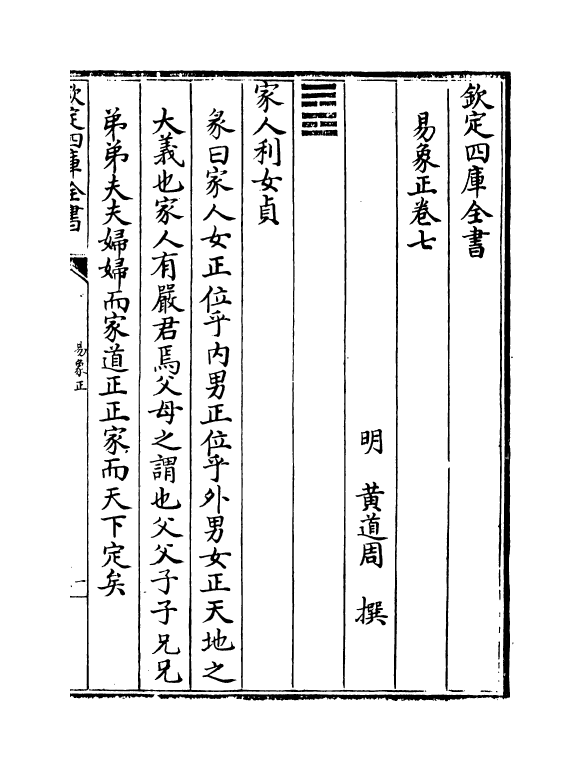 欽定四庫全書
易象正卷七
明 黃道周 撰
䷤
家人利女貞
彖曰家人女正位乎內男正位乎外男女正天地之
大義也家人有嚴君焉父母之謂也父父子子兄兄
弟弟夫夫婦婦而家道正正家而天下定矣
欽定四庫全書
易象正
一